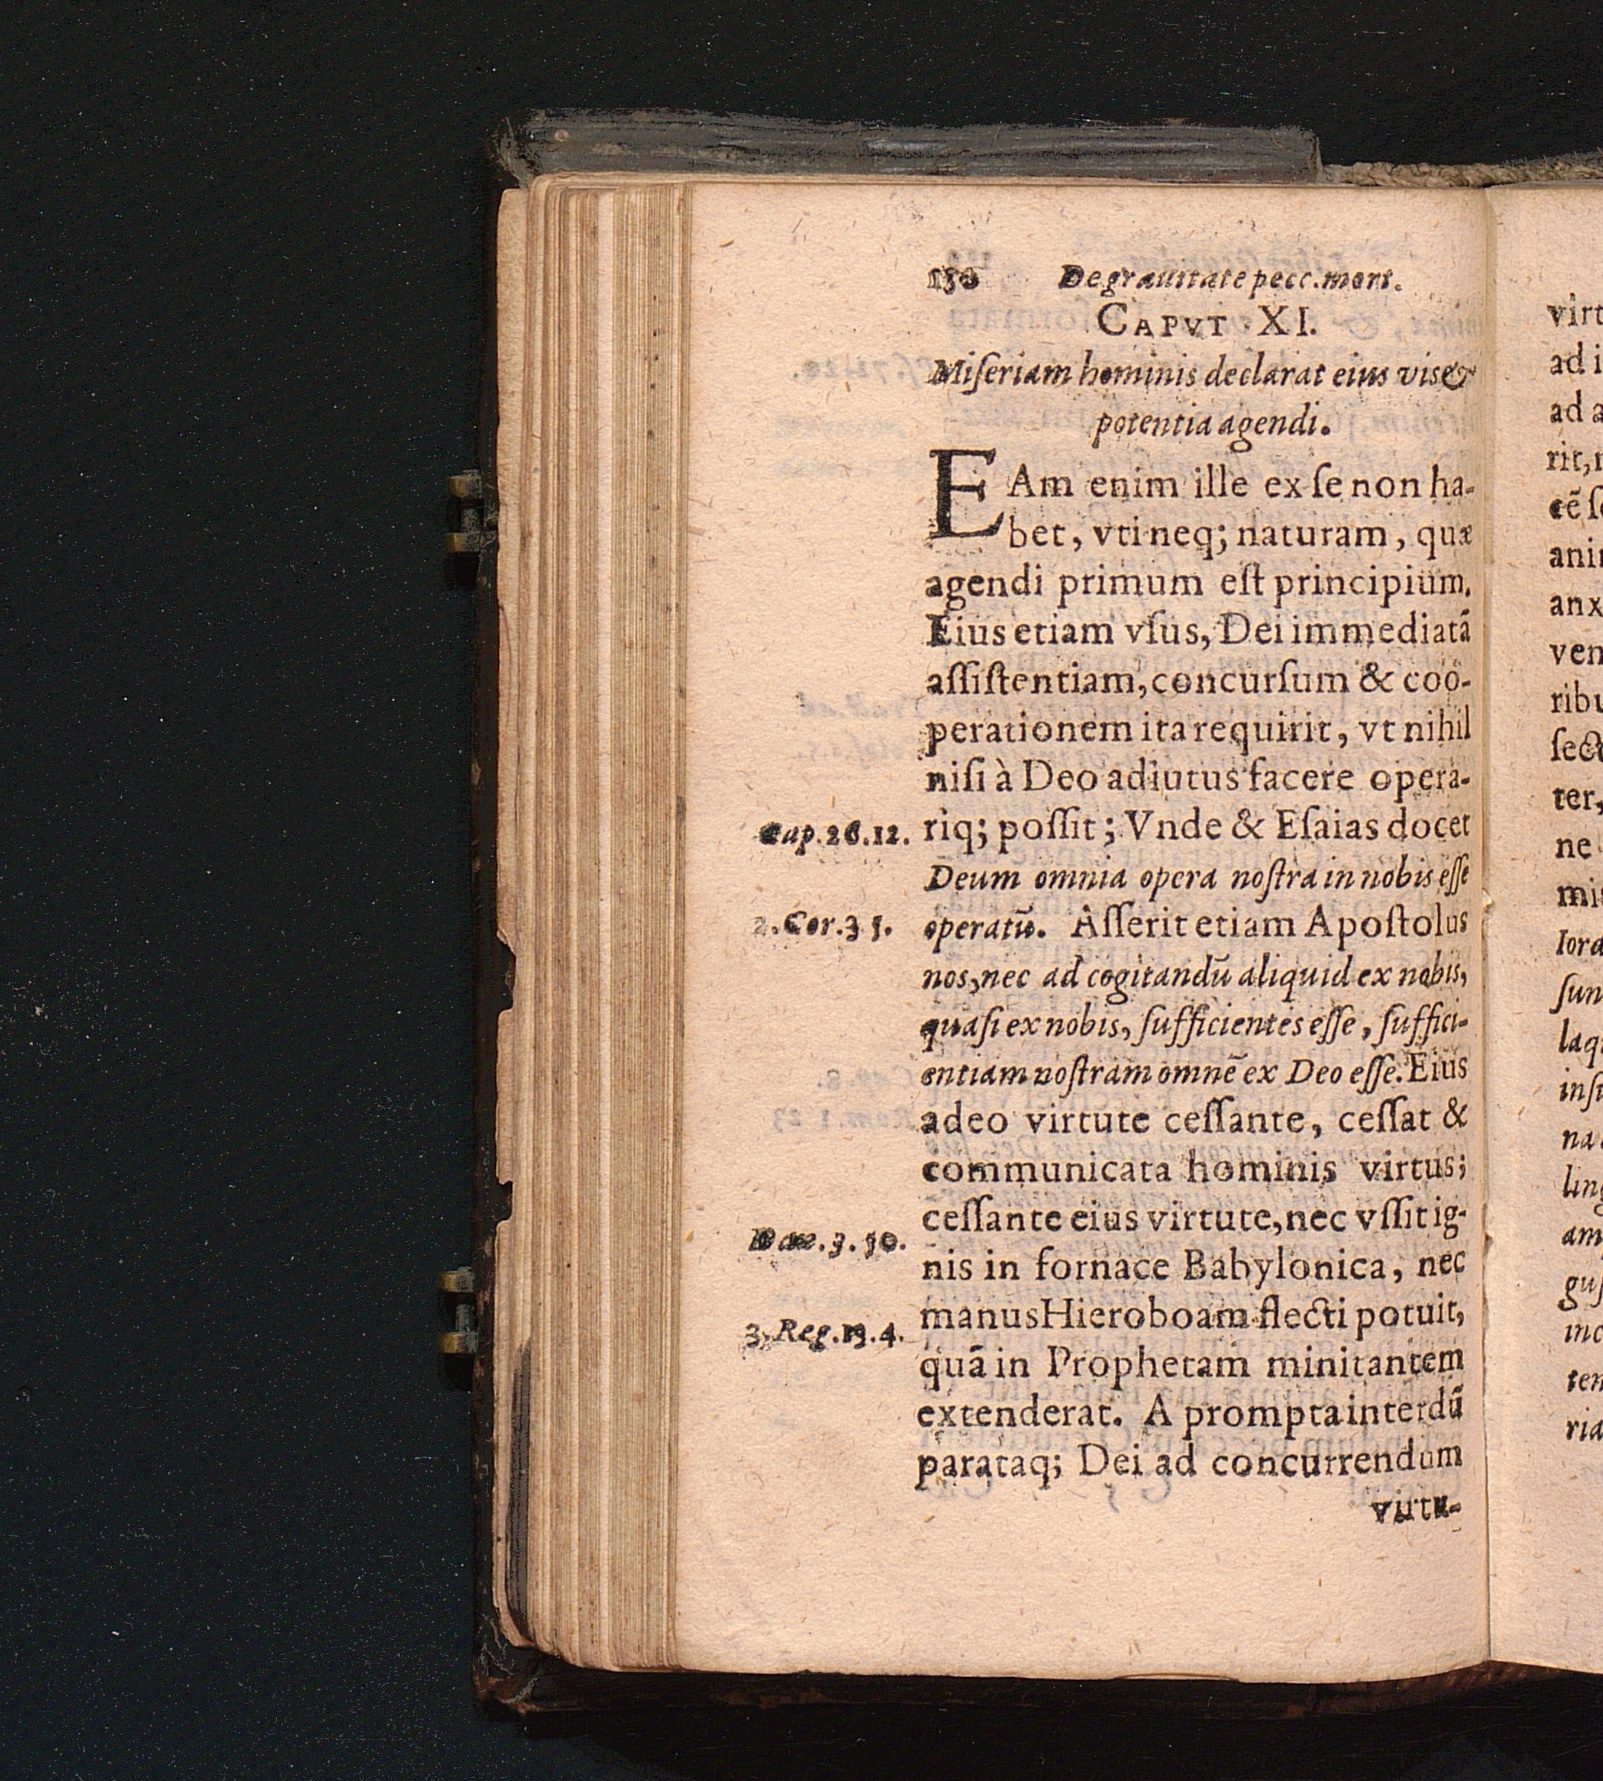 150 De grauitate pecc. mort.
CAPVT XI.
Miſeriam hominis declarat eius vis &
potentia agendi.
EAm enim ille ex ſe non ha-
bet, vti neq; naturam, quæ
agendi primum eſt principium.
Eius etiam vſus, Dei immediatã
aſſiſtentiam, concurſum & coo-
perationem ita requirit, vt nihil
niſi à Deo adiutus facere opera-
Cap. 26.12. riq; poſſit; Vnde & Eſaias docet
Deum omnia opera noſtra in nobis eſſe
2. Cor. 3 5. operatũ. Aſſerit etiam Apoſtolus
nos, nec ad cogitandũ aliquid ex nobis,
quaſi ex nobis, ſufficientes eſſe, ſuffici-
entiam noſtram omnẽ ex Deo eſſe. Eius
adeo virtute ceſſante, ceſſat &
communicata hominis virtus;
ceſſante eius virtute, nec vſſit ig-
Dan. 3. 50. nis in fornace Babylonica, nec
3. Reg. 13.4. manus Hieroboam flecti potuit,
quã in Prophetam minitantem
extenderat. A prompta interdũ
parataq; Dei ad concurrendum
virtu-
virt
ad i
ad a
rit,
cẽ ſ
ani
anx
ven
ribu
ſect
ter,
ne
mi
Iora
ſun
laq
inſ
na
ling
am
guſ
inc
ten
ria